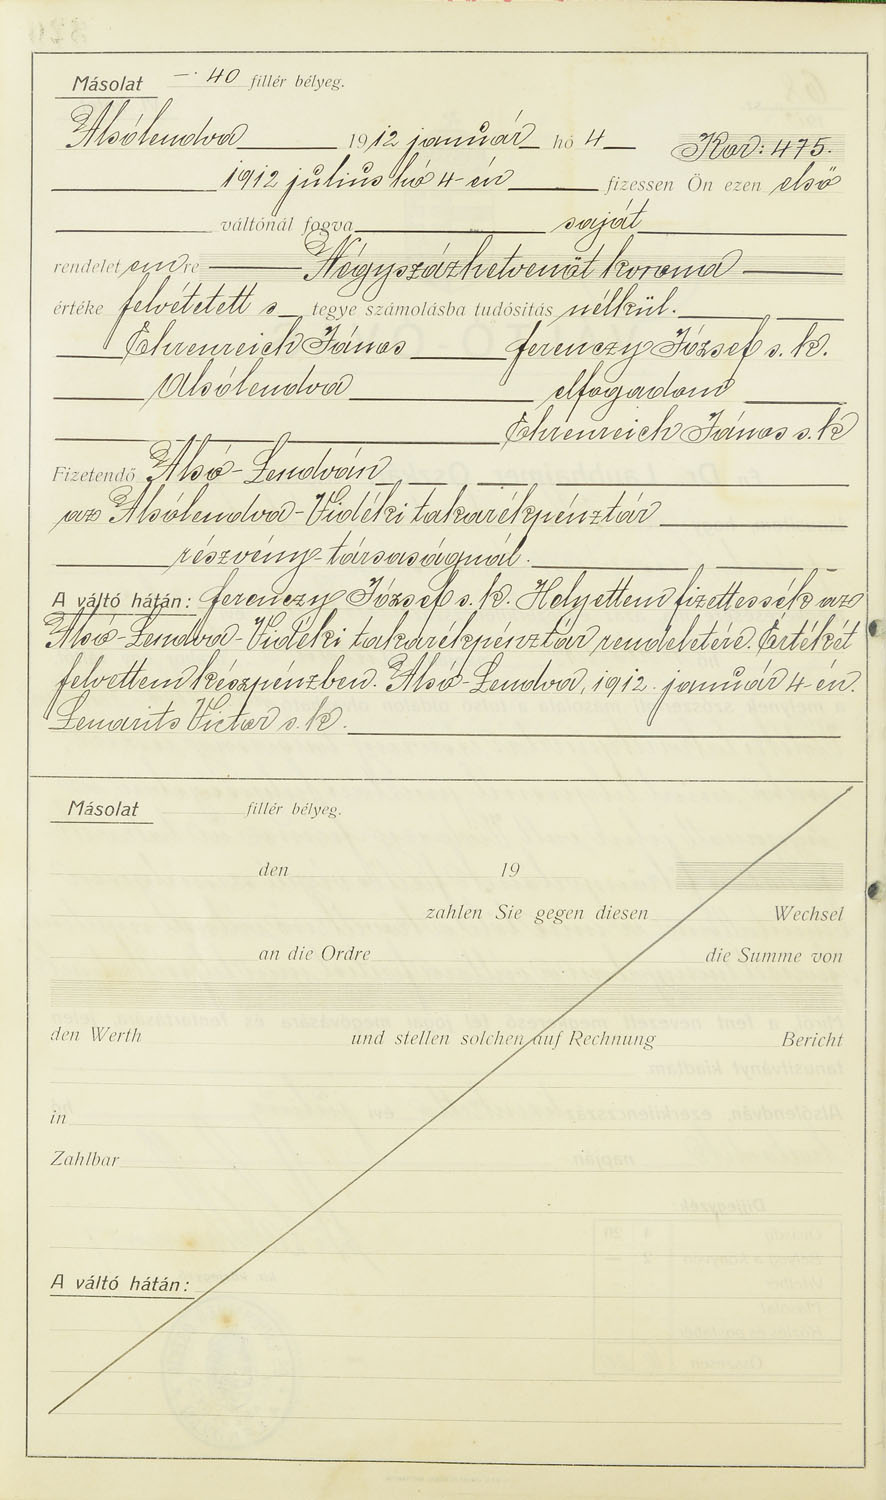 Másolat —· 40 fillér bélyeg.
Alsólendva 1912 január hó 4 Kor: 475.
1912 julius hó 4-én fizessen Ön ezen első
váltónál fogva saját
rendelet emre Négyszázhetvenöt korona
érték e felvétetett s tegye számolásba tudósítás nélkül.
Ehrenreich János ferenczy József s. k.
Alsólendva elfogadom
Ehrenreich János s. k
Fizetendő Alsó-Lendván
az Alsólendva-Vidéki takarékpénztár
részvény-társaságnál.
A váltó hátán: ferenczy József s. k. Helyettem fizettessék az
Alsó-Lendva-Vidéki takarékpénztár rendeletére. Értékét
felvettem készpénzben. Alsó-Lendva, 1912. január 4-én.
Victor s. k.
Másolat fillér bélyeg.
den 19
zahlen Sie gegen diesen Wechsel
an die Ordre die Summe von
den Werth und stellen solchen auf Rechnung Bericht
in
Zahlbar
A váltó hátán: